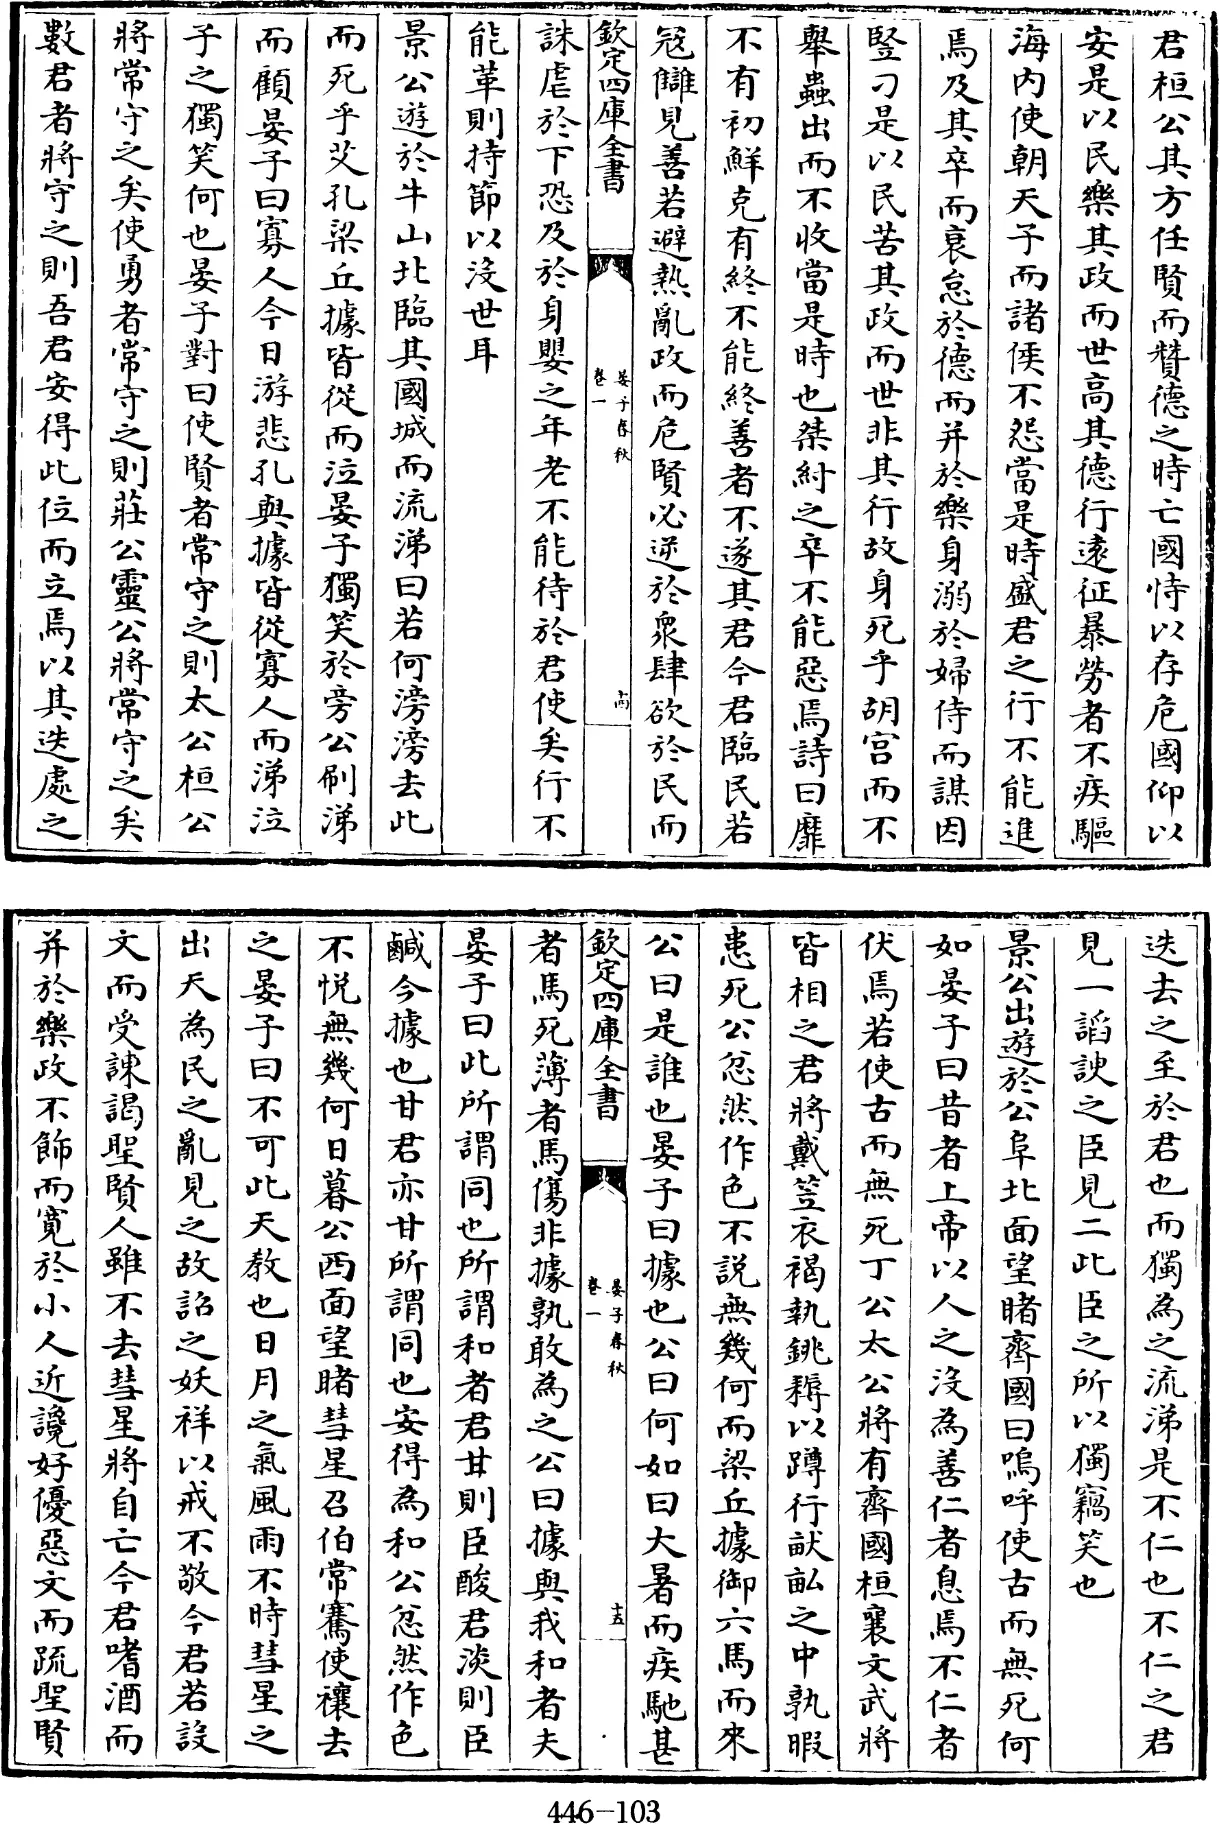 君桓公其方任賢而贊德之時亡國恃以存危國仰以
安是以民樂其政而世高其德行逺征暴勞者不疾驅
海内使朝天子而諸侯不怨當是時盛君之行不能進
焉及其卒而衰怠於德而并於樂身溺於婦侍而謀因
豎刁是以民苦其政而世非其行故身死乎胡宫而不
舉蟲出而不收當是時也桀紂之卒不能惡焉詩曰靡
不有初鮮克有終不能終善者不遂其君今君臨民若
冦讎見善若避熱亂政而危賢必逆於衆肆欲於民而
欽定四庫全書
晏子春秋
卷一
十四
誅虐於下恐及於身嬰之年老不能待於君使矣行不
能革則持節以没世耳
景公遊於牛山北臨其國城而流涕曰若何滂滂去此
而死乎艾孔梁丘據皆從而泣晏子獨笑於旁公刷涕
而顧晏子曰寡人今日游悲孔與據皆從寡人而涕泣
子之獨笑何也晏子對曰使賢者常守之則太公桓公
將常守之矣使勇者常守之則莊公靈公將常守之矣
數君者將守之則吾君安得此位而立焉以其迭處之
迭去之至於君也而獨為之流涕是不仁也不仁之君
見一謟諛之臣見二此臣之所以獨竊笑也
景公出遊於公阜北面望睹齊國曰嗚呼使古而無死何
如晏子曰昔者上帝以人之没為善仁者息焉不仁者
伏焉若使古而無死丁公太公將有齊國桓襄文武將
皆相之君將戴笠衣褐執銚耨以蹲行畎畝之中孰暇
患死公忿然作色不說無幾何而梁丘據御六馬而來
公曰是誰也晏子曰據也公曰何如曰大暑而疾馳甚
欽定四庫全書
晏子春秋
卷一
十五
者馬死薄者馬傷非據孰敢為之公曰據與我和者夫
晏子曰此所謂同也所謂和者君甘則臣酸君淡則臣
鹹今據也甘君亦甘所謂同也安得為和公忿然作色
不悅無幾何日暮公西面望睹彗星召伯常騫使禳去
之晏子曰不可此天教也日月之氣風雨不時彗星之
出天為民之亂見之故詔之妖祥以戒不敬今君若設
文而受諫謁聖賢人雖不去彗星將自亡今君嗜酒而
并於樂政不飾而寛於小人近讒好優惡文而疏聖賢
446-103